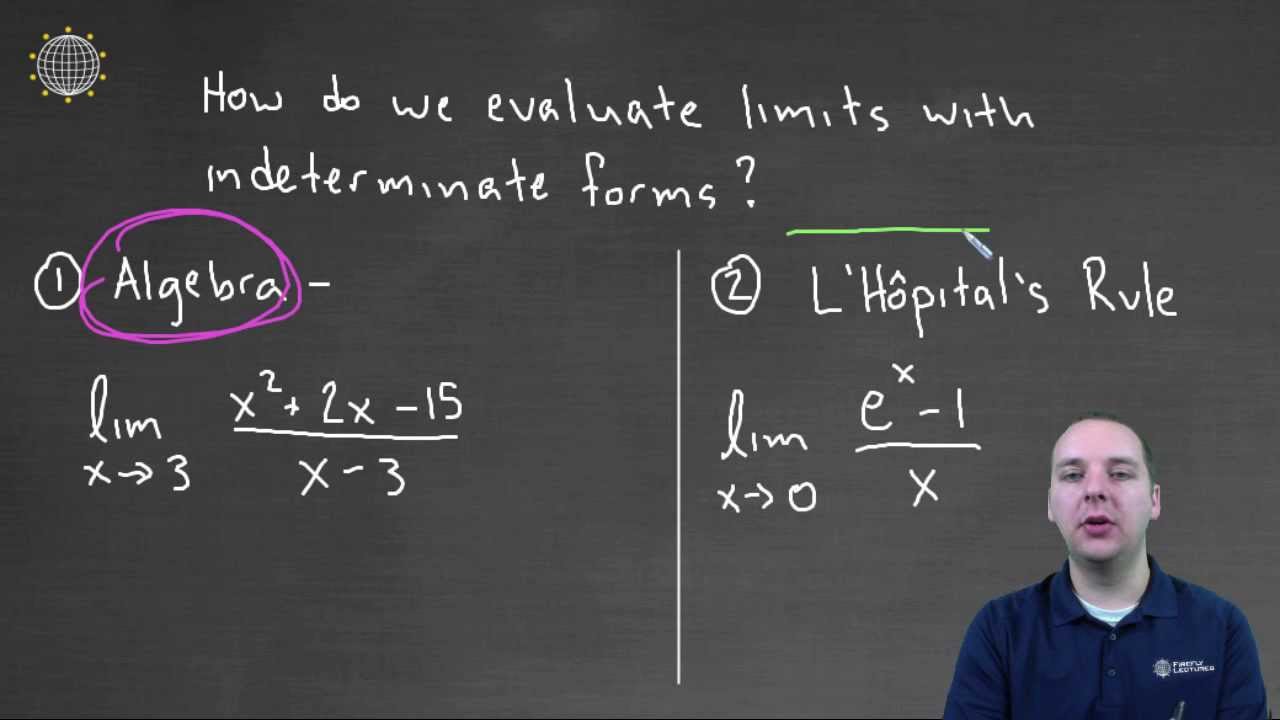 How do we evaluate limits with
indeterminate forms?
① Algebra -
lim x→3 (x² + 2x - 15) / (x - 3)
② L'Hôpital's Rule
lim x→0 (eˣ - 1) / x
FIREFLY
LECTURES